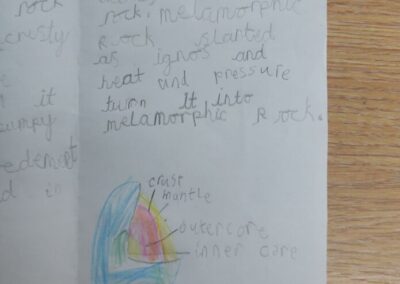 rock
crusty
it
umpy
edement
d in
rock. melamorphic
Rock slarted
as ignos and
heat and pressure
turn it into
melamorphic Rock.
crust
mantle
outercore
inner care